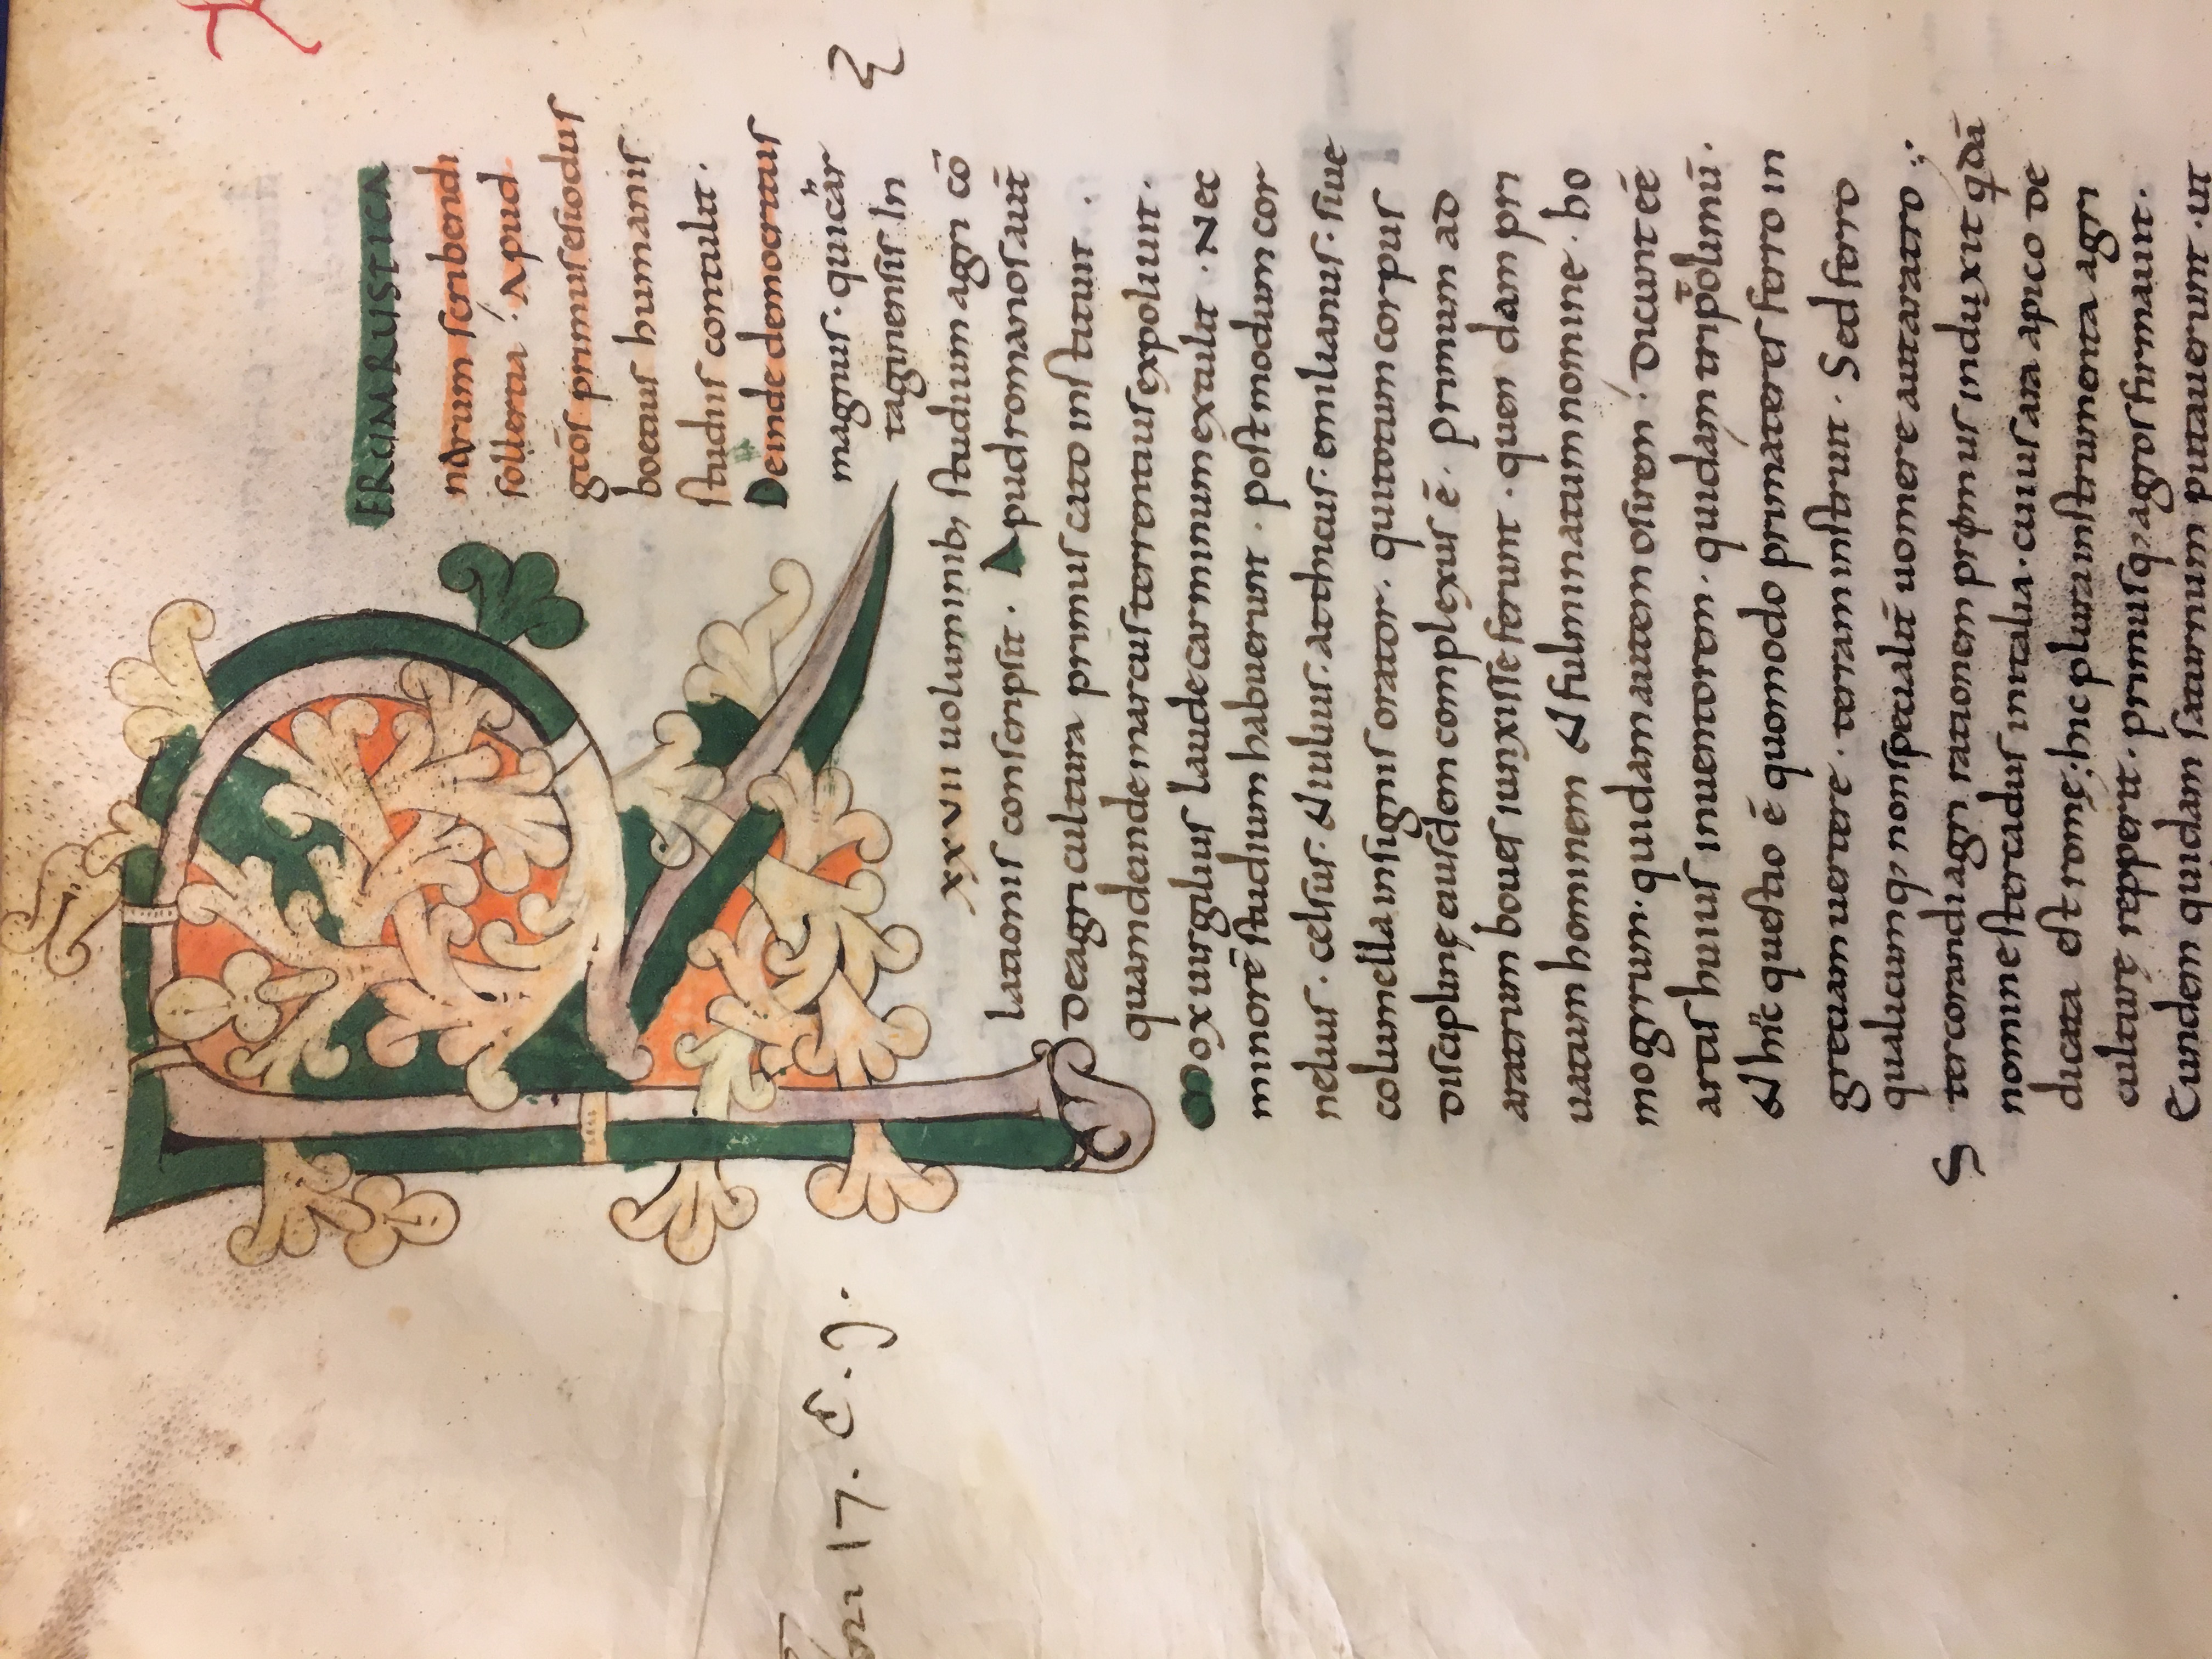 RERUM RUSTICA
narum scribendi
sollertia · Apud
grecos primus esiodus
boetius humanis
studiis contulit ·
Deinde democritus
magnus · qui car
taginensis In
xxvii uoluminib; studium agri cō
lationis conscripsit · Apud romanos aut̄
De agri cultura primus cato instituit ·
quam deande marcus terrentius expoliuit ·
Mox uirgilius laude carminum extulit · Nec
minorē studium habuerunt · postmodum cor
nelius · celsus · & iulius · atthicus · emilianus · siue
columella insignis orator · qui totum corpus
disciplinę eiusdem complexus ē · primum ad
aratrum boues iunxisse ferunt · quendam pri
uatum hominem & fulminatum nomine · ho
mogirum · quidam autem osirem · Dicunt eē
artis huius inuentorem · quidam tripolimū ·
& hic questio ē quomodo primateres ferro in
gretiam uertere · terram instruit · Sed ferro
qualicumq; non speciali uomere aut aratro ·
Stercorandi agri rationem primus induxit qdā
nomine stercadus in italia · cuius ara a pico de
dicata est rome; hic plura instrumenta agri
culturę repperit · primusq; agros firmauit ·
Eundem quidam saturnum putauerunt · ut
17. C. J.